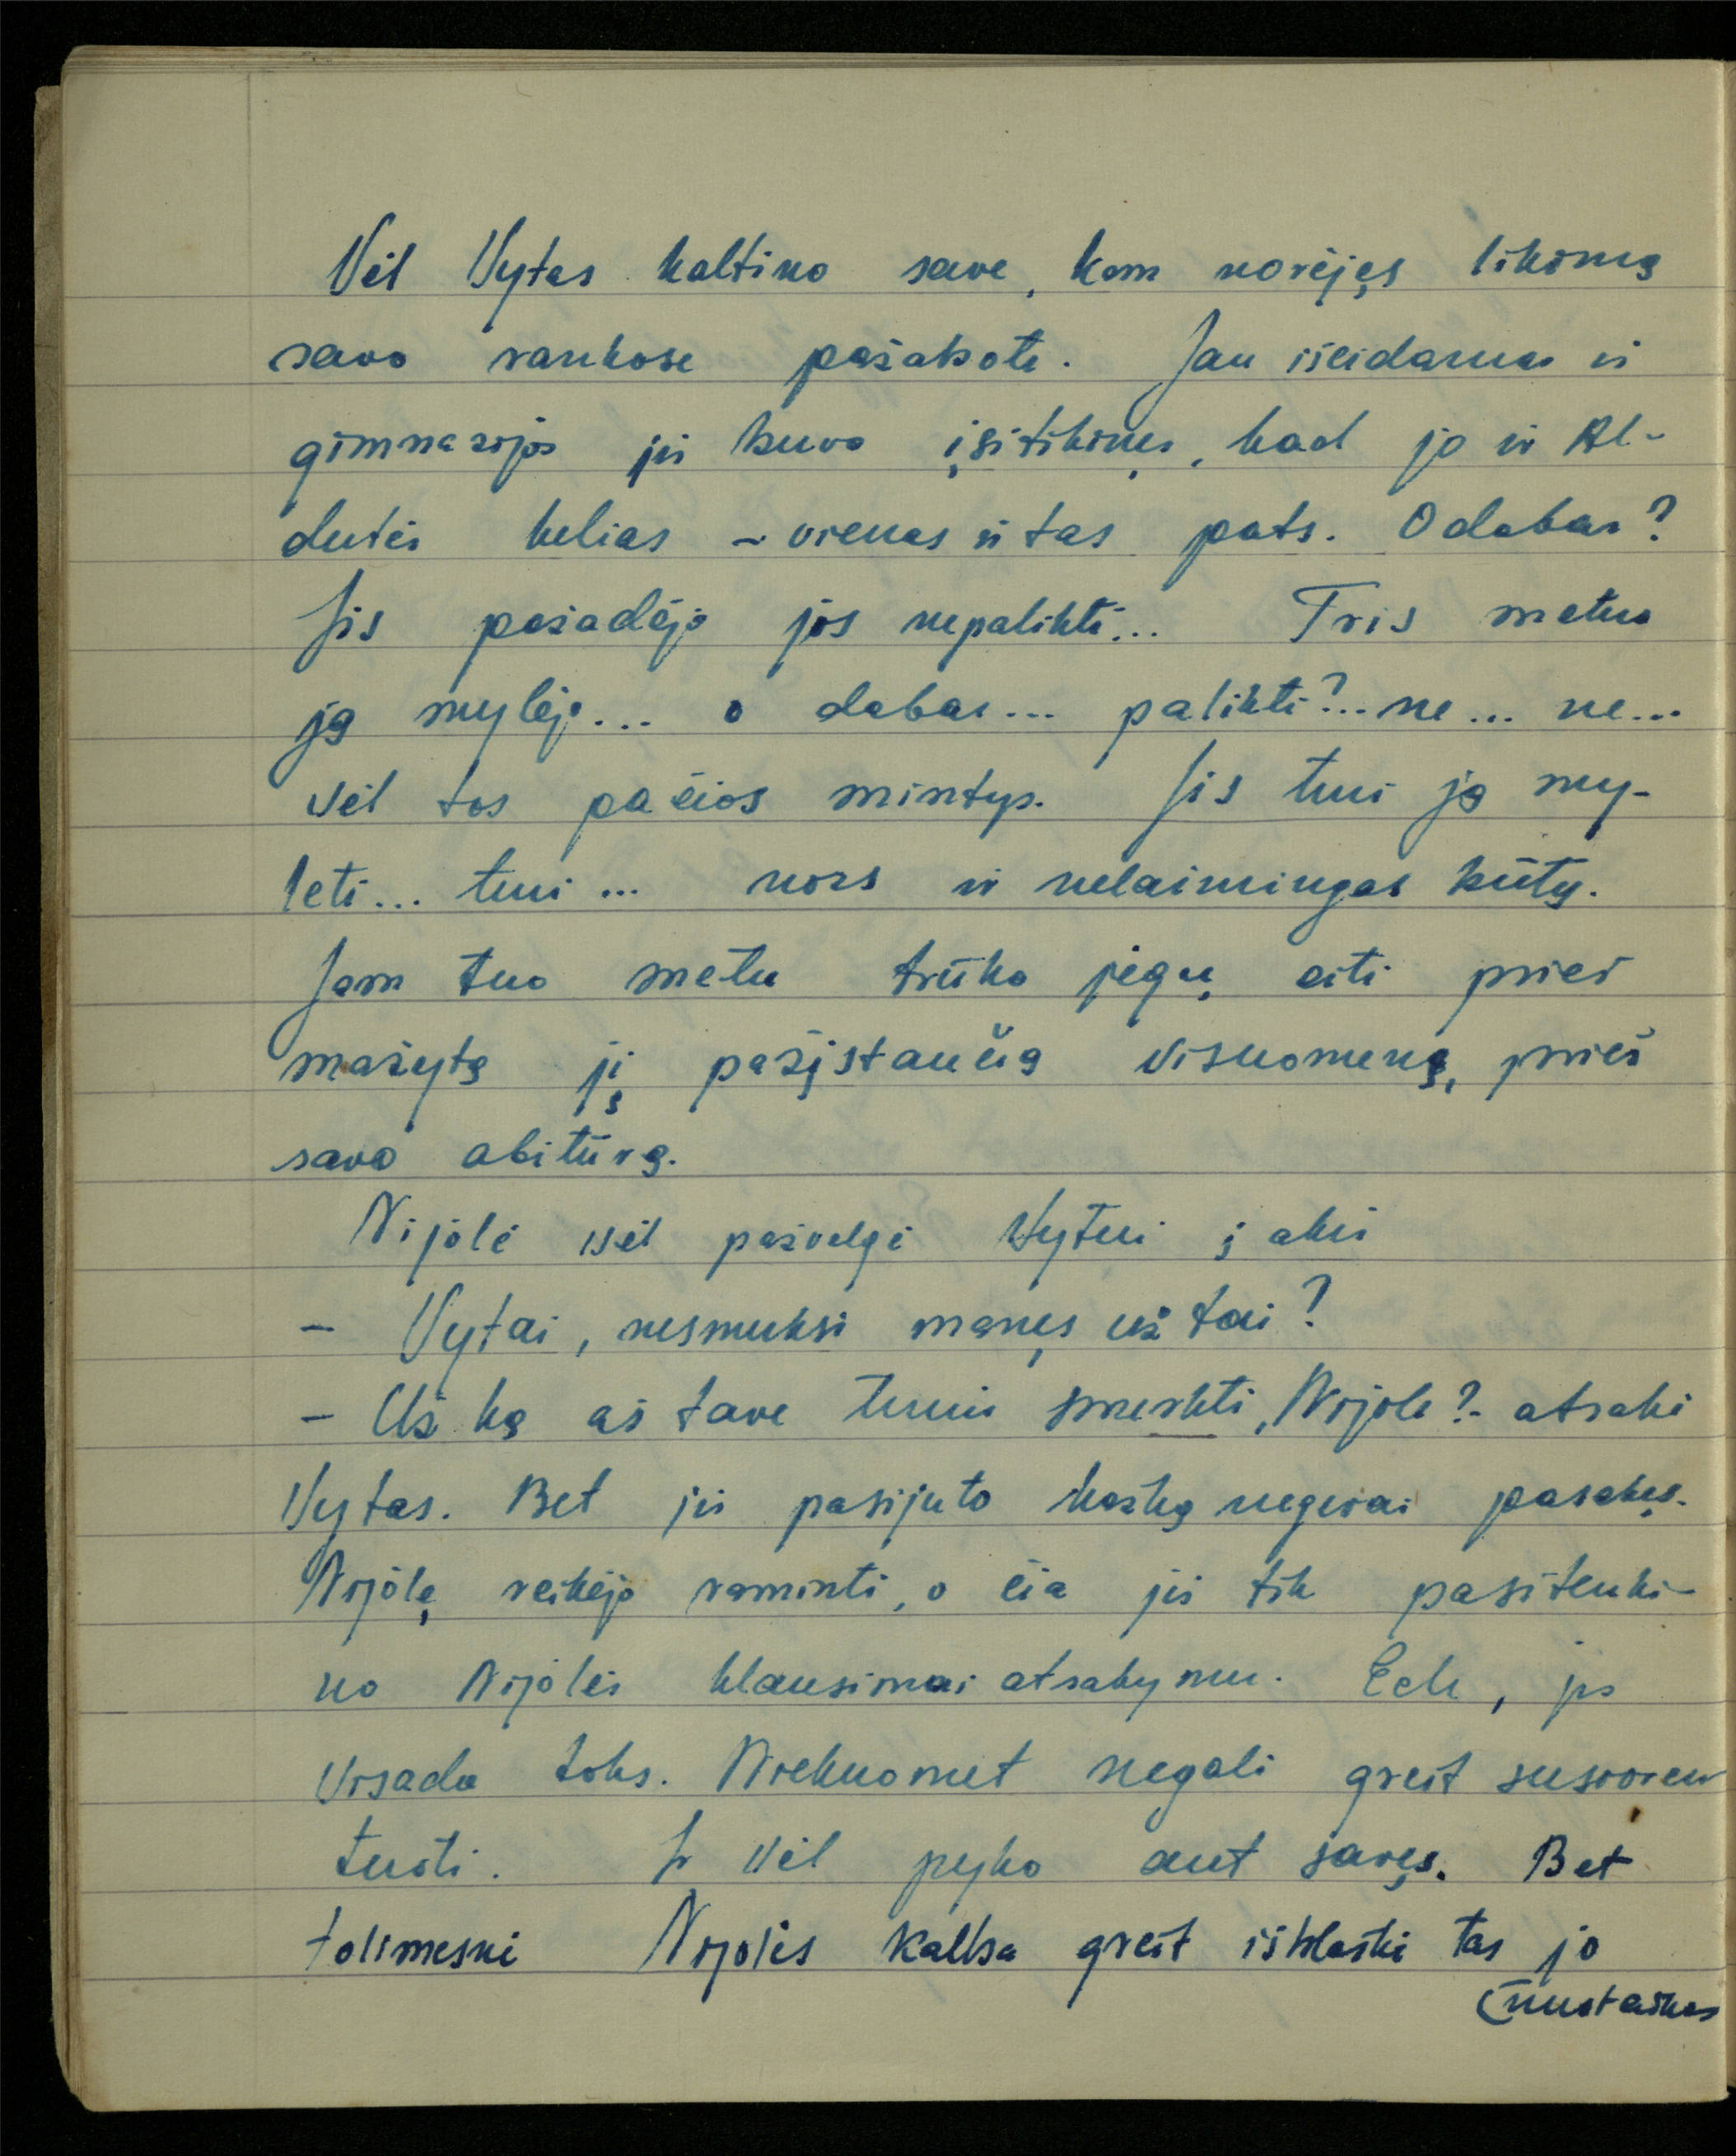 Vėl Vytas kaltino save, kam norėjęs likimą
savo rankose pašokoti. Jau išeidamas iš
gimnazijos jis buvo įsitikinęs, kad jo ir Al-
dutės kelias – vienas ir tas pats. O dabar?
Jis pažadėjo jos nepalikti... Tris metus
ją mylėjo... o dabar... palikti?.. ne... ne...
Vėl tos pačios mintys. Jis turi ją my-
lėti... turi... nors ir nelaimingas būtų.
Jam tuo metu trūko jėgų eiti prieš
mažytę jį pažįstančią visuomenę, prieš
savo abitūrą.
Nijolė vėl pažvelgė Vytui į akis
– Vytai, nesmerksi manęs už tai?
– Už ką aš tave turiu smerkti, Nijole? - atsakė
Vytas. Bet jis pasijuto kažką negerai pasakęs.
Nijolę reikėjo raminti, o čia jis tik pasitenki-
no Nijolės klausimai atsakymu. Ech, jis
visada toks. Niekuomet negali greit susiorien
tuoti. Ir vėl pyko ant savęs. Bet
tolimesnė Nijolės kalba greit išblaškė tas jo
nuotaikas